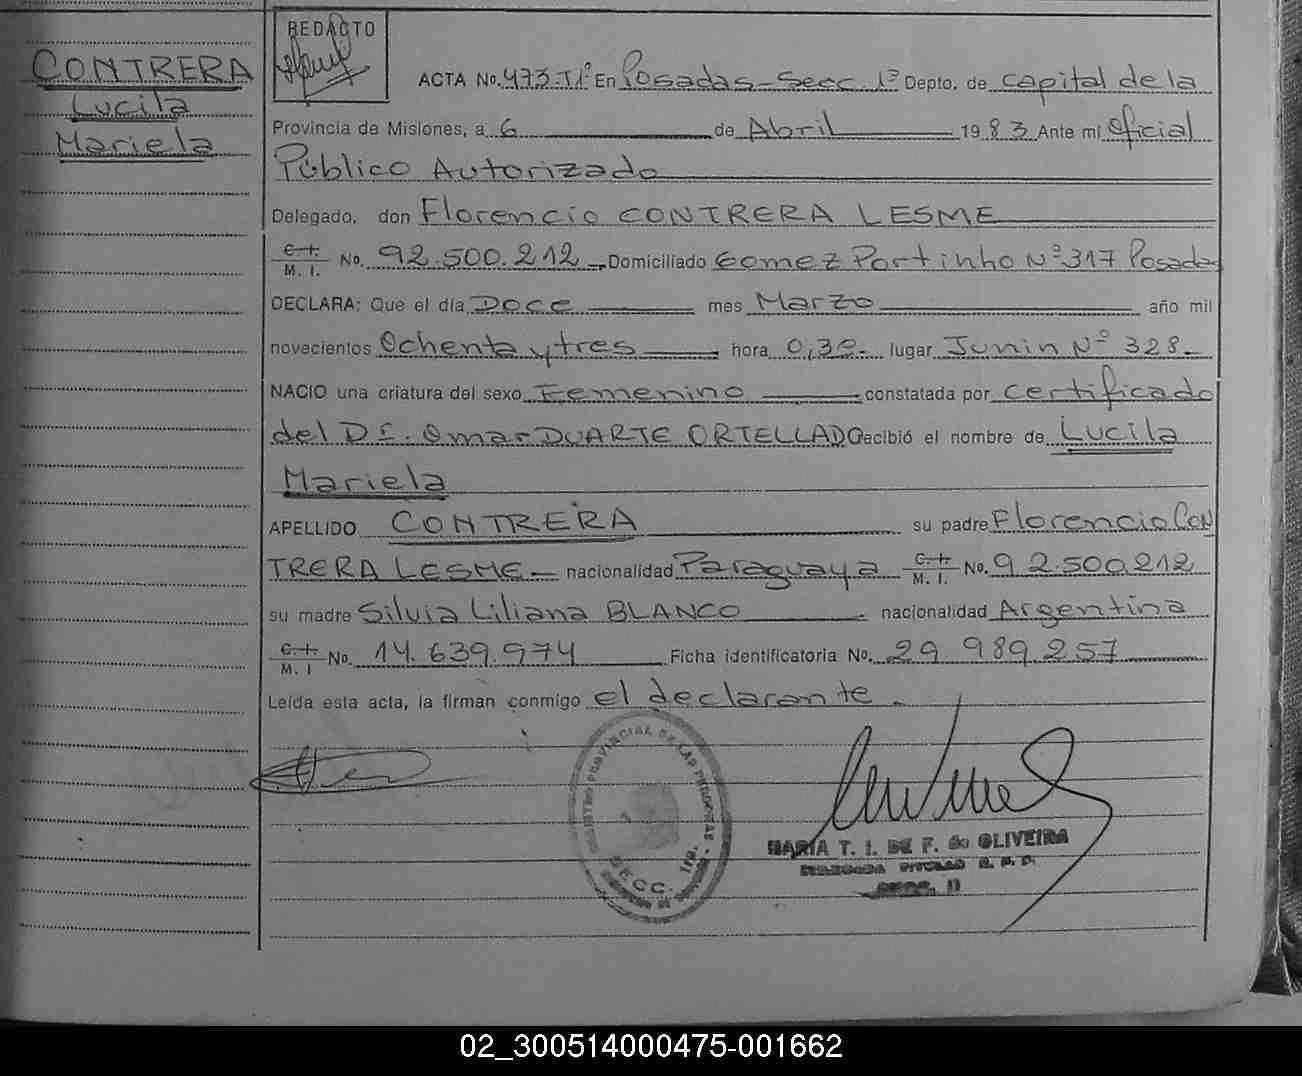 CONTRERA
Lucila
Mariela
REDACTO
ACTA No. 473-T1º En Posadas-Secc. 1ª Depto. de Capital de la
Provincia de Misiones, a 6 de Abril 1983 Ante mi Oficial
Público Autorizado
Delegado, don Florencio CONTRERA LESME
C. I.
M. I. No. 92.500.212 Domiciliado Gomez Portinho Nº 317 Posadas
DECLARA: Que el día Doce mes Marzo año mil
novecientos Ochenta y tres hora 0,30. lugar Junin Nº 328.
NACIO una criatura del sexo Femenino constatada por Certificado
del Dr. Omar DUARTE ORTELLADO ecibió el nombre de Lucila
Mariela
APELLIDO CONTRERA su padre Florencio CON
TRERA LESME- nacionalidad Paraguaya C. I.
M. I. No. 92.500.212
su madre Silvia Liliana BLANCO nacionalidad Argentina
C. I.
M. I No. 14.639.974 Ficha identificatoria No. 29 989 257
Leída esta acta, la firman conmigo el declarante.
REGISTRO PROVINCIAL DE LAS PERSONAS
SECC.
MARIA T. I. DE F. de OLIVEIRA
TITULAR R. P. P.
SECC.
02_300514000475-001662